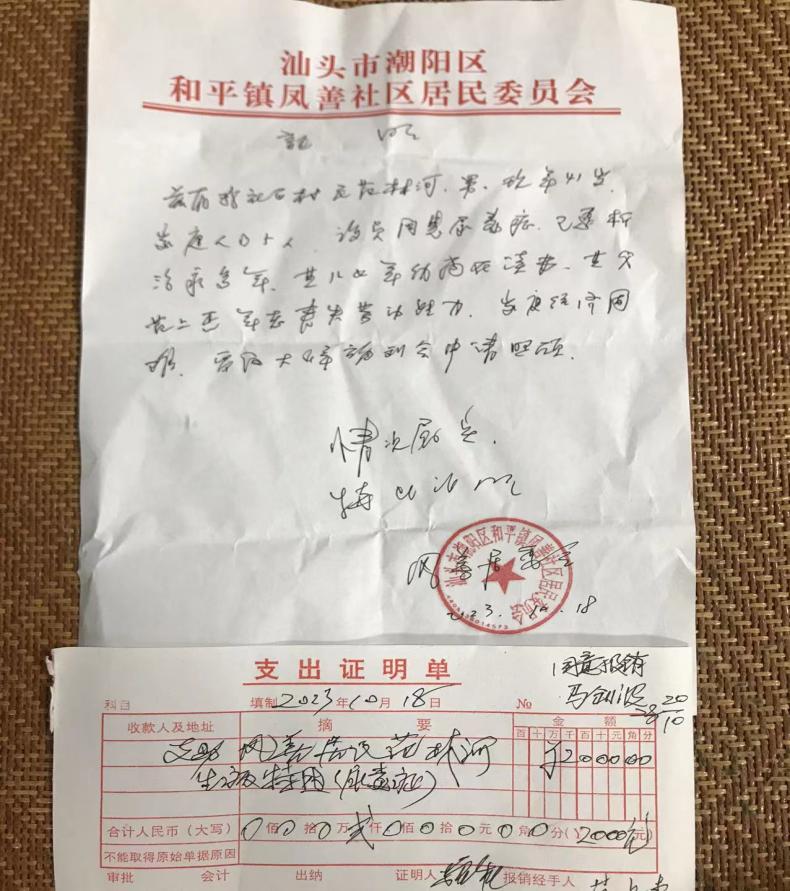 汕头市潮阳区
和平镇凤善社区居民委员会
证 明
兹有我社区村民范林河,男,现年41岁,
家庭人口5人。该员因患尿毒症,已透析
治疗多年,其儿女年幼尚在读书,其父
范上 年老丧失劳动能力,家庭经济困
难。 大峰 到会申请照顾。
情况属实,
特此证明
凤善居委会
汕头市潮阳区和平镇凤善社区居民委员会
2023.10.18
支出证明单
同意报销
科目 填制2023年10月18日 №
20/10
收款人及地址 摘要 金额
百十万千百十元角分
支助凤善居民范林河 ¥200000
生活特困(尿毒症)
合计人民币(大写)0佰0拾0万贰仟0佰0拾0元0角0分(2000元)
不能取得原始单据原因
审批 会计 出纳 证明人 报销经手人